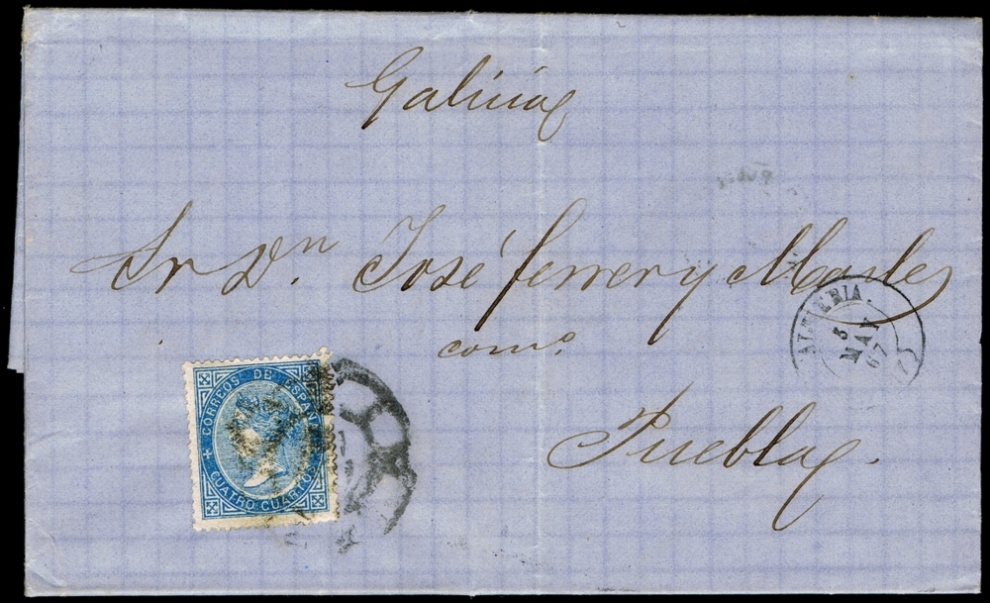 Galicia
Sr Dn. José Ferrer y Mas
como.
Puebla.
CORREOS DE ESPAÑA
CUATRO CUARTOS
ALMERIA.
5
MAY
67